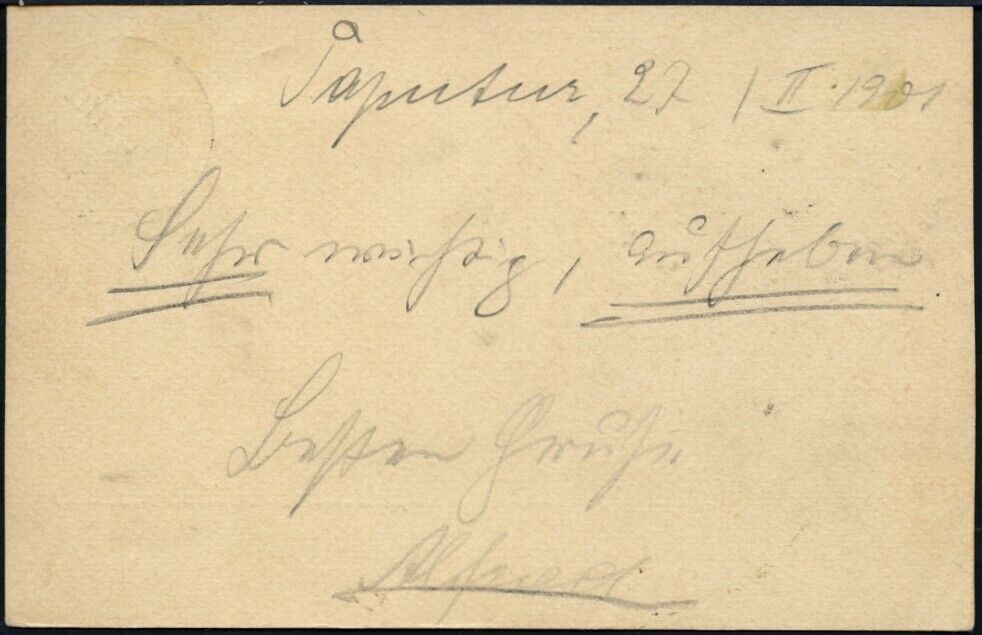 Saputur, 27 / II. 1901
Sehr wichtig, aufheben
Besten Gruß
Alfred